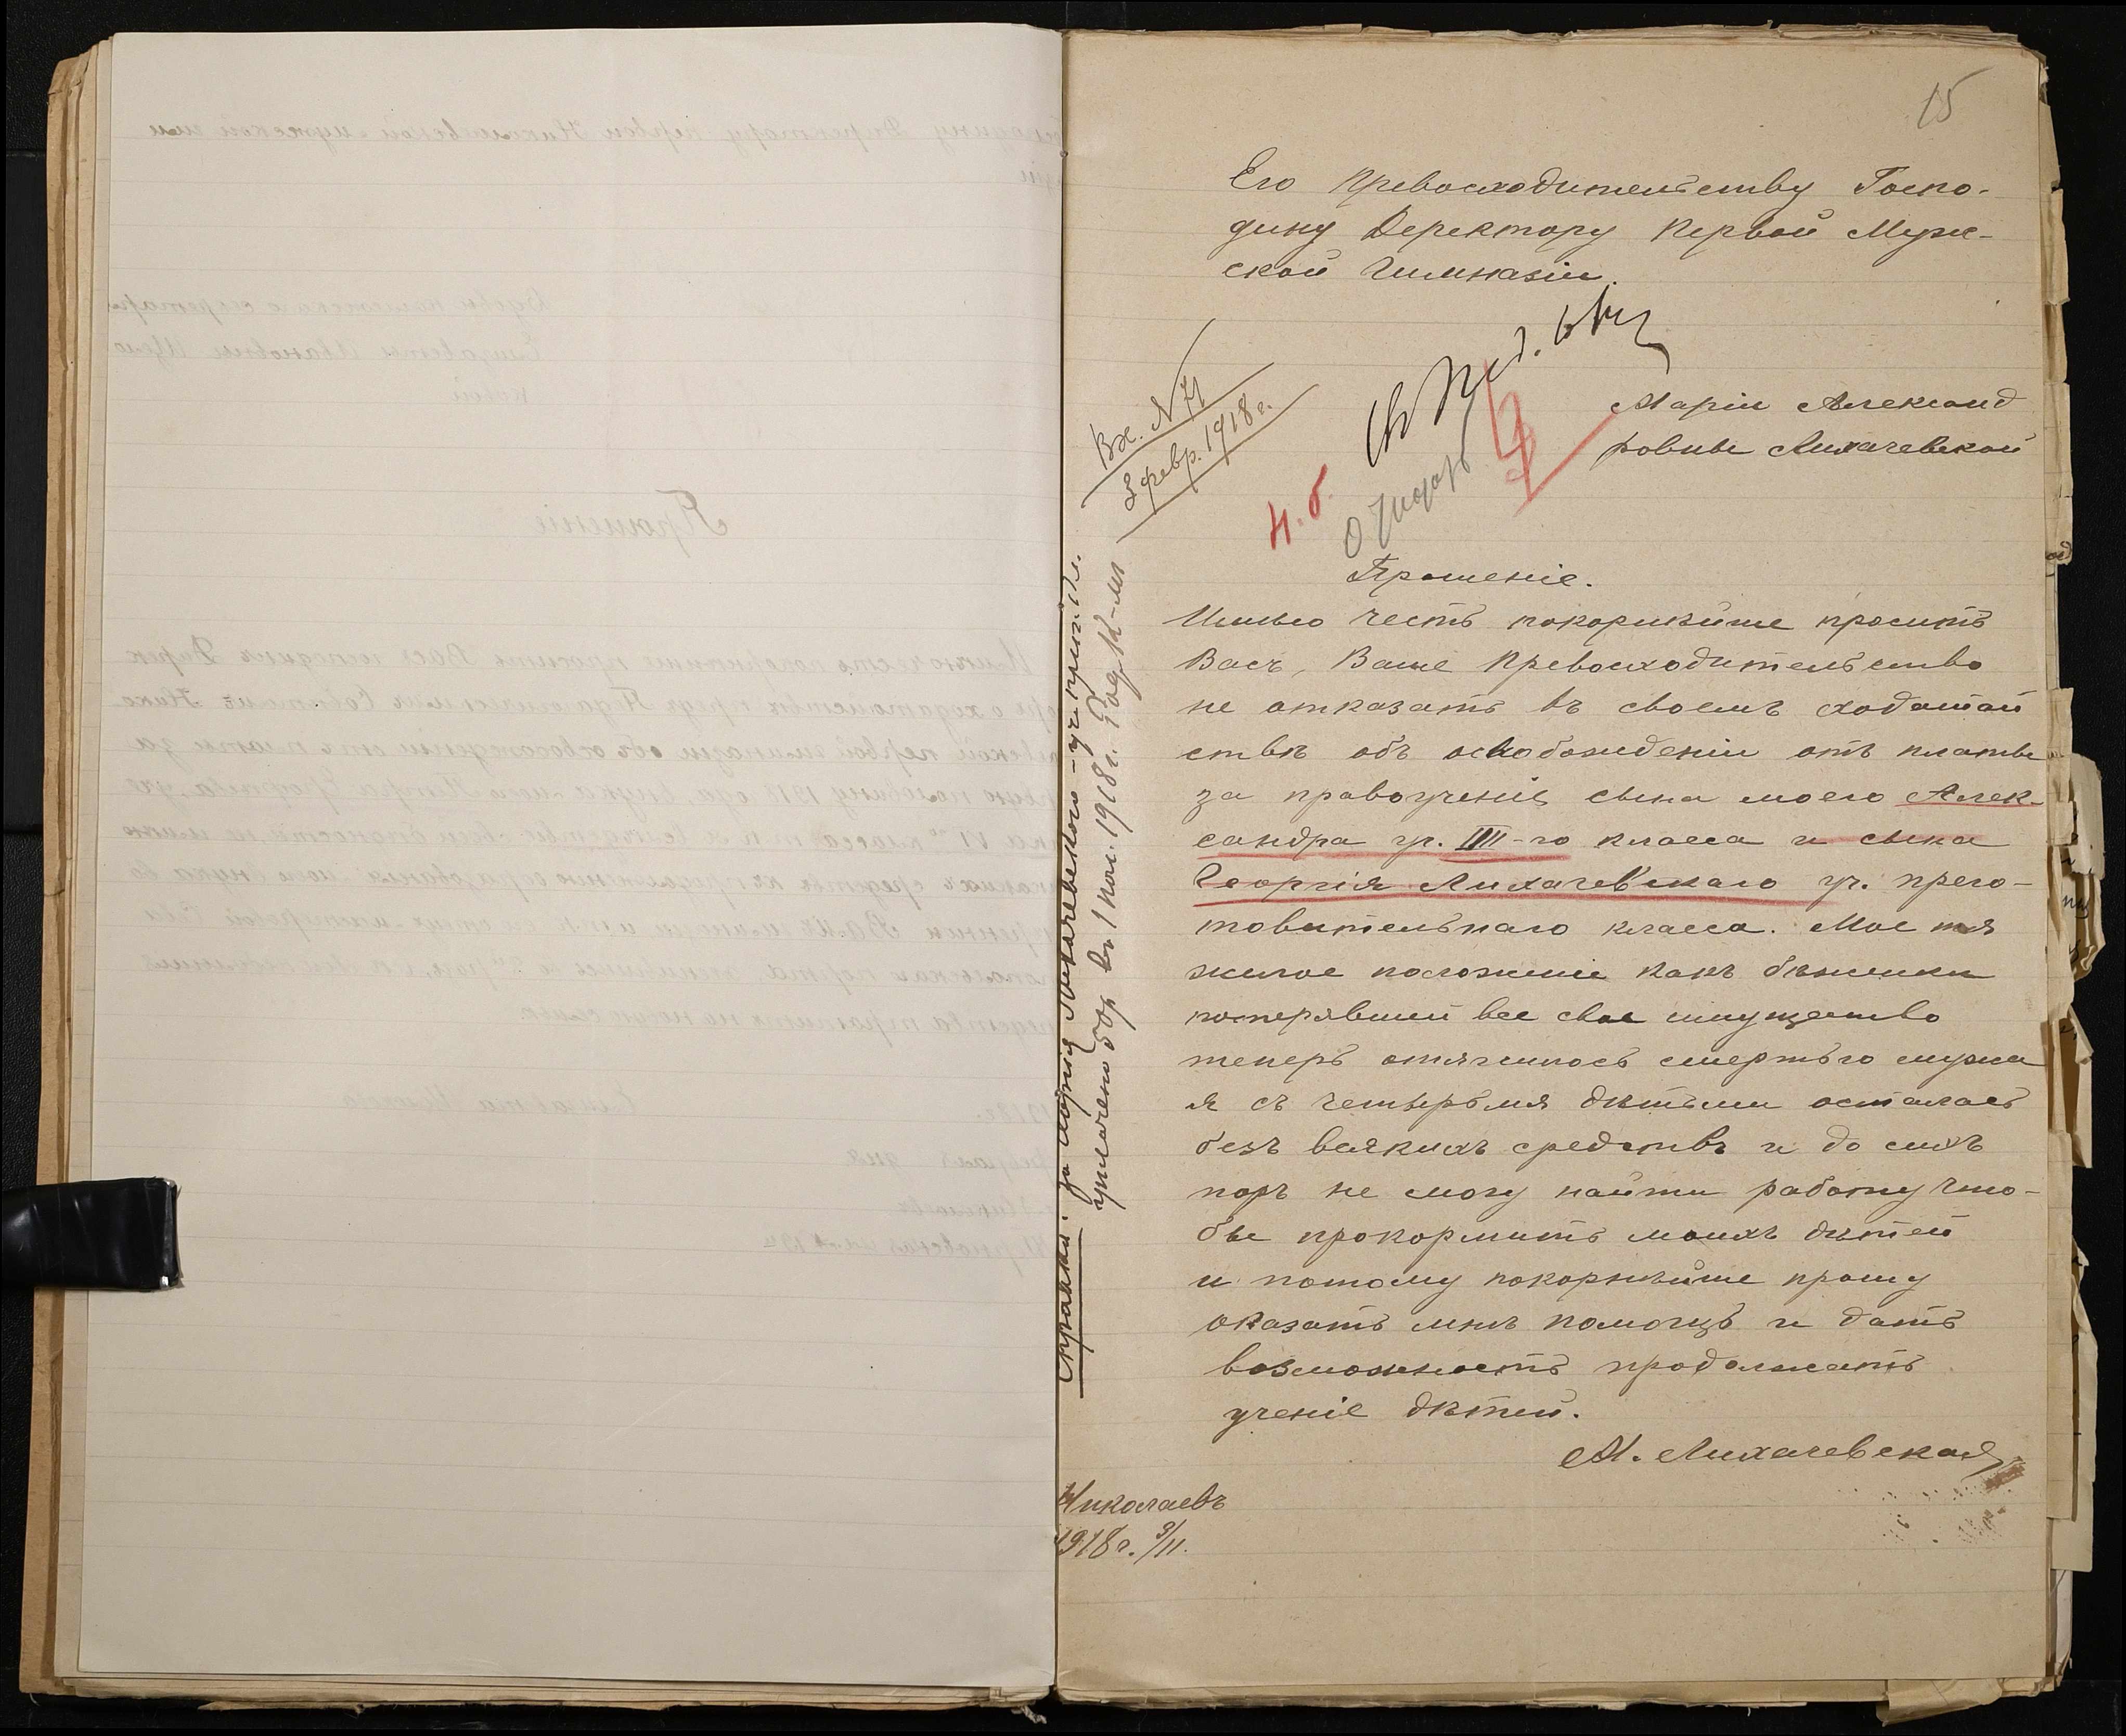 15
Его Превосходительству Госпо-
дину Деректору Первой Муж-
ской Гимназіи.
Вх. N 71
8 февр. 1918 г.
Маріи Александ
ровны Лихачевской
Н. б.
Прошеніе.
Имѣю честь покорнѣйше просить
Васъ, Ваше Превосходительство
не отказать въ своемъ ходатай
ствѣ объ освобожденіи отъ платы
за правоученіе сына моего Алек-
сандра уч. IIII-го класса и сына
Георгія Лихачевскаго уч. приго-
товительнаго класса. Мое тя
желое положеніе какъ бѣженки
потерявшей все свое имущество
теперь отягчилось смертью мужа
я съ четырьмя дѣтьми осталась
безъ всякихъ средствъ и до сихъ
поръ не могу найти работу что-
бы прокормить моихъ дѣтей
и потому покорнѣйше прошу
оказать мнѣ помощь и дать
возможность продолжать
ученіе дѣтей.
М. Лихачевская
Николаевъ
1918 г. 9/II.
Справка: за Георгія Лихачевского - уч. приг. кл.
уплачено 50 р въ 1 пол. 1918 г. Род. К-мъ